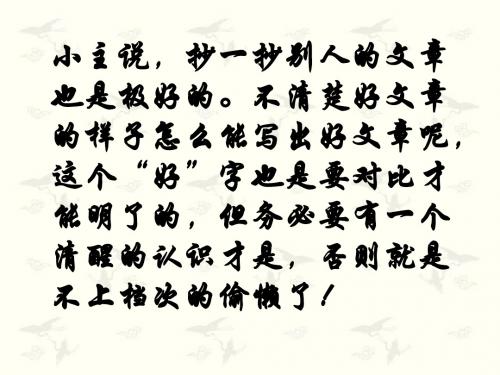 小主说，抄一抄别人的文章
也是极好的。不清楚好文章
的样子怎么能写出好文章呢，
这个“好”字也是要对比才
能明了的，但务必要有一个
清醒的认识才是，否则就是
不上档次的偷懒了！